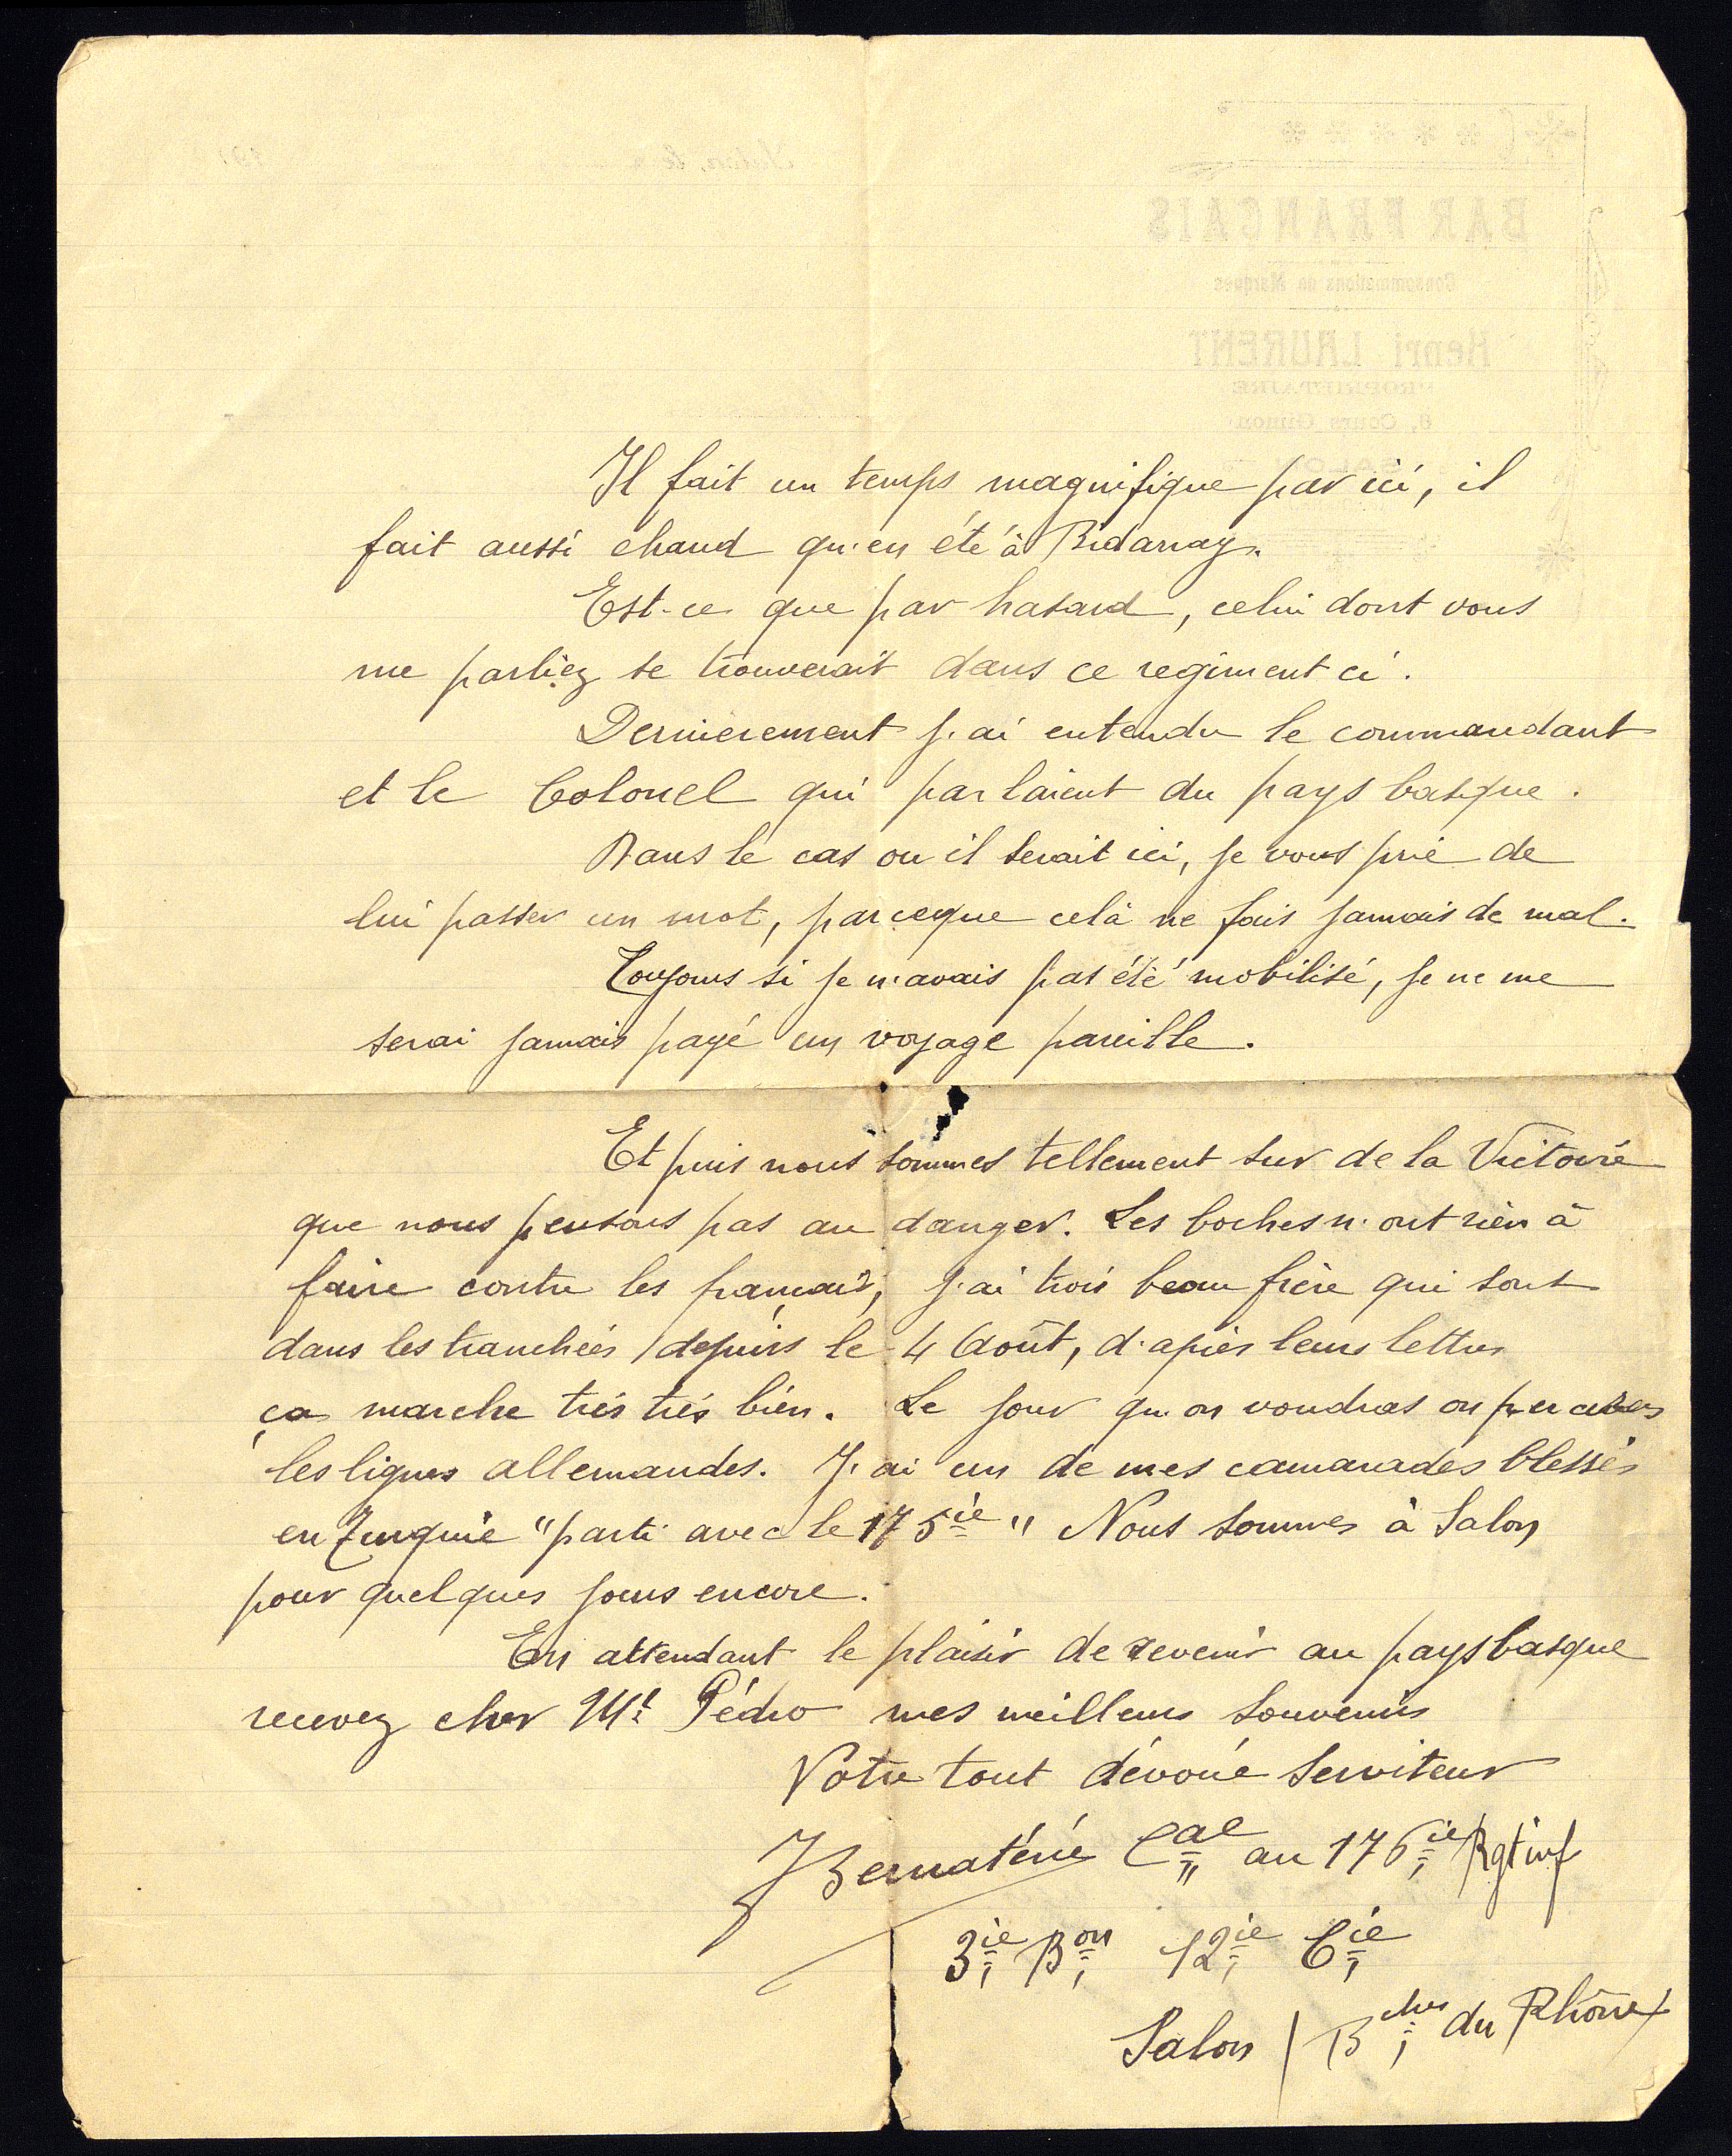 Il fait un temps magnifique par ici, il
fait aussi chaud qu'en été à Bidarray.
Est-ce que par hasard, celui dont vous
me parliez se trouverait dans ce regiment ci.
Dernierement j'ai entendu le commandant
et le Colonel qui parlaient du pays basque.
Dans le cas ou il serait ici, je vous prie de
lui passer un mot, parceque celà ne fais jamais de mal.
Toujours si je n'avais pas été mobilisé, je ne me
serai jamais payé un voyage pareille.
Et puis nous sommes tellement sur de la Victoire
que nous pensons pas au danger. Les boches n'ont rien à
faire contre les français, j'ai trois beau frère qui sont
dans les tranchées depuis le 4 Août, d'après leurs lettres
ça marche trés trés bien. Le jour qu'on voudras on percera
les lignes allemandes. J'ai un de mes camarades blessés
en Turquie "parti avec le 175ie" Nous sommes à Salon
pour quelques jours encore.
En attendant le plaisir de revenir au pays basque
recevez cher Mr Pédro mes meilleurs souvenirs
Votre tout dévoué serviteur
J Bernaténé Cal au 176ie Rgt inf
3ie Bon 12ie Cie
Salon / Bches du Rhône
BAR FRANÇAIS
Consommations de Marques
Henri LAURENT
PROPRIÉTAIRE
SALON